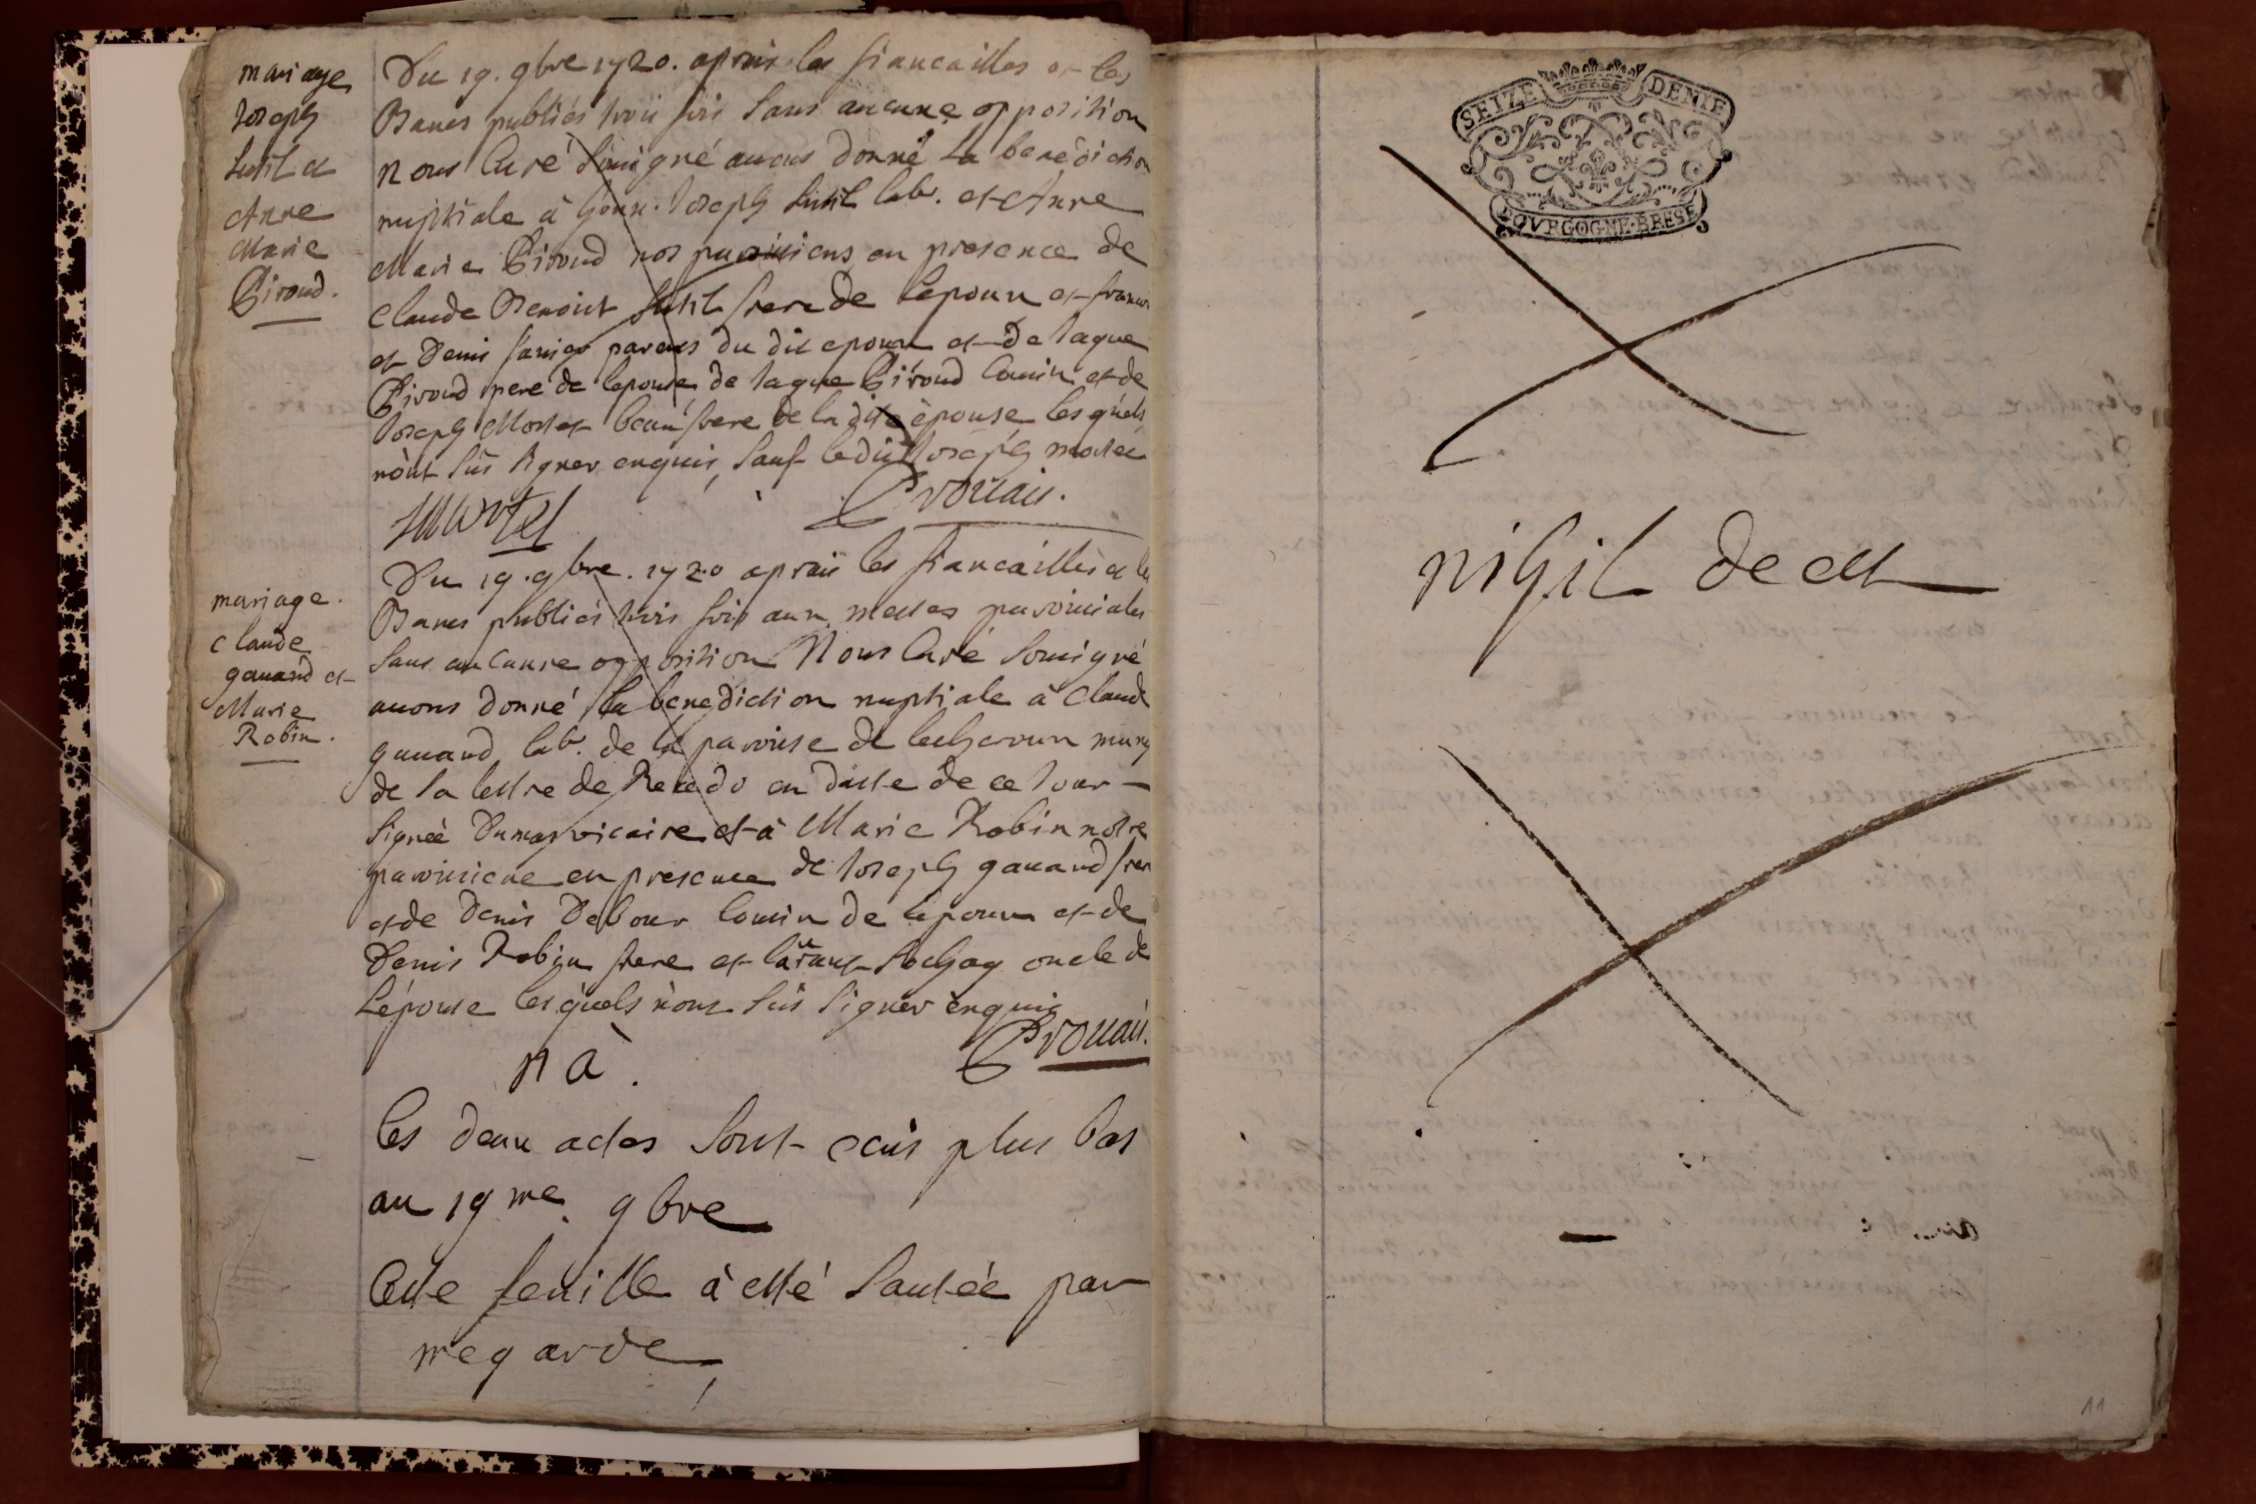 mariage
Joseph
Sutil et
Anne
Marie
Giroud.
Du 19. 9bre 1720. apres les fiancailles et les
Bancs publiés trois fois sans aucune opposition
nous Curé sousigné avons donné La benediction
nuptiale à honn. Joseph Sutil lab.r et Anne
Marie Giroud nos paroissiens en presence de
Claude Benoist Sutil frere de lepoux et francois
et Denis parens du dit epoux et de Jaque
Giroud pere de lepouse, de Jaque Giroud Cousin et de
Joseph Mortet beaufrere de la dite épouse lesquels
nònt sùs signer enquis, sauf ledit Joseph mortel
J Mortel
Du 19. 9bre. 1720 apres les fiancailles et les
Bancs publiés trois fois aux messes paroissiales
sans aucunne opposition Nous Curé sousigné
avons donné la benediction nuptiale à Claude
gauand lab.r de la paroisse de lecheroux muny
de la lettre de Recedo en datte de ce Jour
signeé Dumas vicaire et à Marie Robin notre
paroissiene en presence de Joseph gauand frere
et de Denis Debour Cousin de lepoux et de
Denis Robin frere et laurant oncle de
Lépouse lesquels nònt sùs signer ènquis
mariage.
Claude
gauand et
Marie
Robin.
n a.
les deux actes sont ecris plus bas
au 19me. 9bre
Cette feuille à esté sautée par
megarde
SEIZE DENIE
BOVRGOGNE·BRESE
nihil deest
11